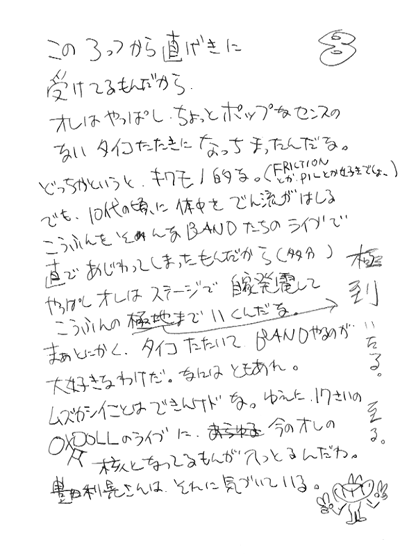 8
この3つから直げきに
受けてるもんだから、
オレはやっぱし、ちょっとポップなセンスの
ないタイコたたきになっちまったんだな。
どっちかというと、キワモノ的な。(FRICTION
とか、PILとか好きでねぇ、)
でも、10代の頃に体中をでん流がはしる
こうふんをそんなBANDたちのライブで
直であじわってしまったもんだから(多分)
やっぱしオレはステージで自家発電して
こうふんの極地までいくんだな。
極到
にいたる。至る。
まぁとにかく、タイコたたいてBANDやるのが
大好きなわけだ。なにはともあれ。
ムズカシイことはできんケドな。ゆえに、17さいの
DOLLのライブに、今のオレの
核となってるもんが入っとるんだわ。
豊田利晃さんは、それに気づいている。